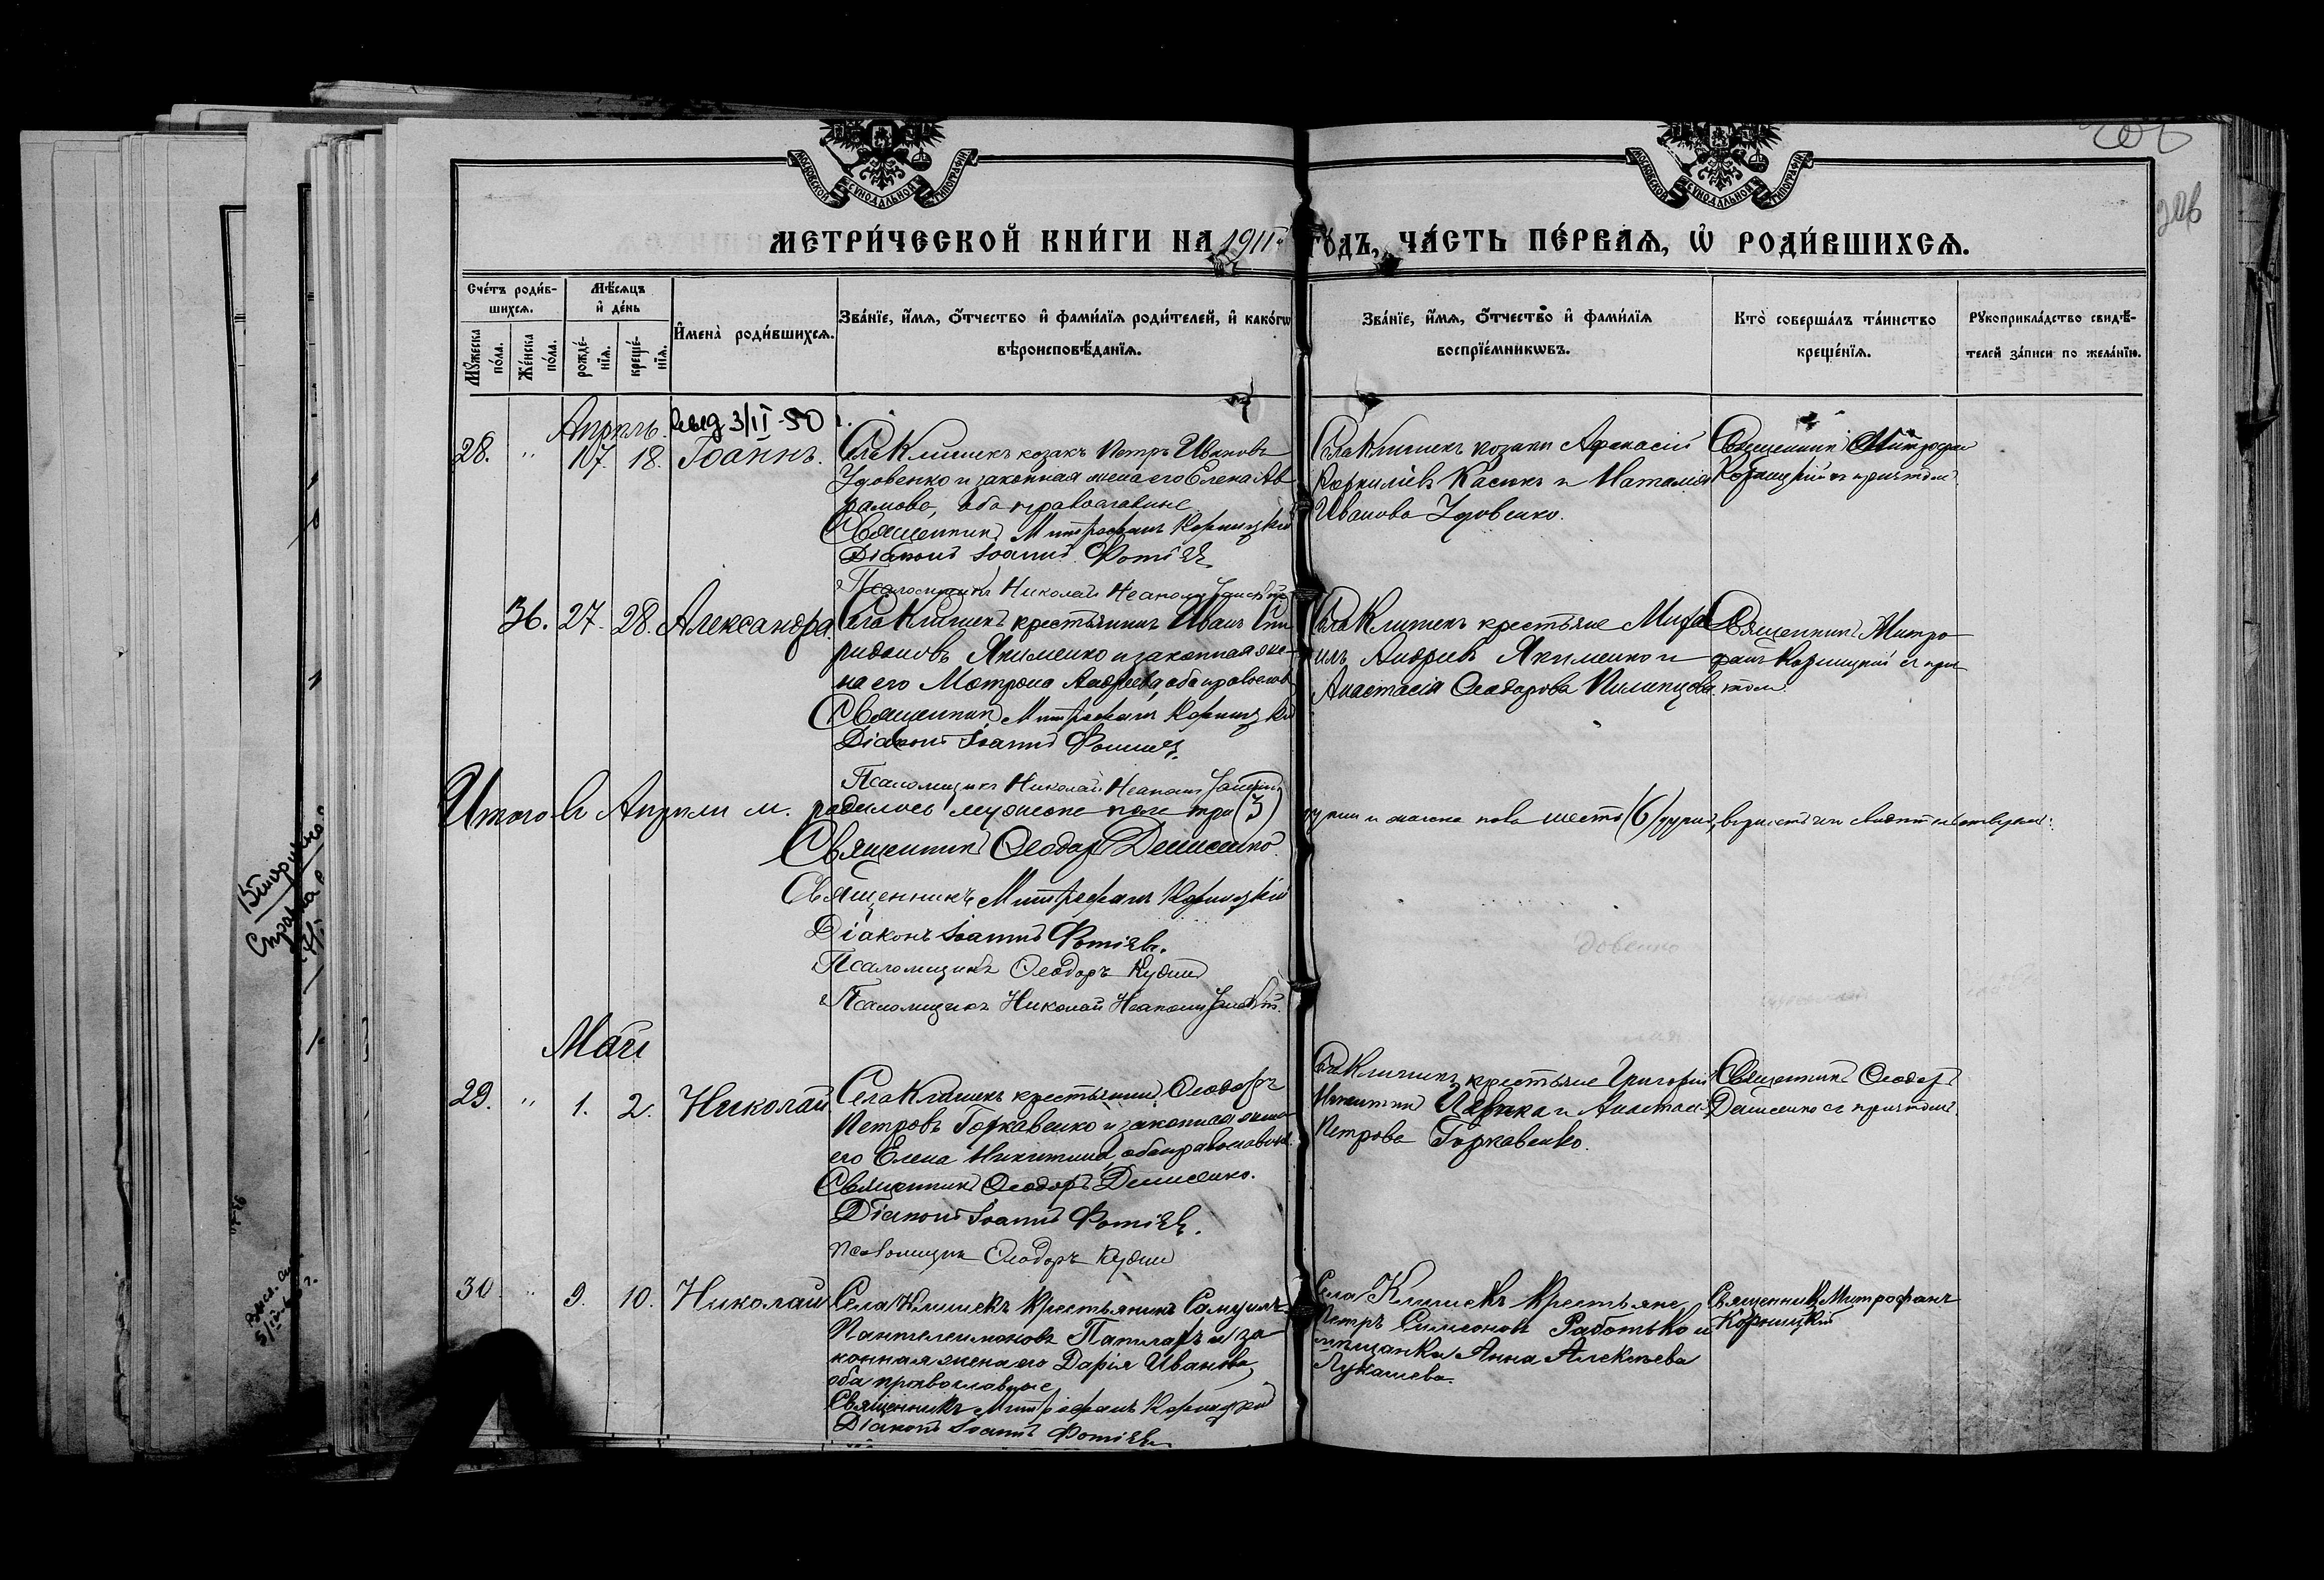 МОСКОВСКОЙ СѴНОДАЛЬНОЙ ТИПОГРАФІИ
МОСКОВСКОЙ СѴНОДАЛЬНОЙ ТИПОГРАФІИ
206
МЕТРИ́ЧЕСКОЙ КНИ́ГИ НА 1911й ГО́ДЪ, ЧА́СТЬ ПЕ́РВАЯ, Ѡ РОДИ́ВШИХСЯ.
Сче́тъ роди́в-
шихся.
Мѣ́сяцъ
и҆ де́нь
Мꙋ́жеска
по́ла.
Же́нска
по́ла.
рожде́-
нїя.
креще́-
нїя.
И҆мена̀ роди́вшихся.
Зва́нїе, и҆́мя, о҆́тчество и҆ фами́лїя роди́телей, и҆ како́гѡ
вѣроисповѣ́данїя.
Зва́нїе, и҆́мя, о҆́тчество и҆ фами́лїя
воспрїе́мникѡвъ.
Кто̀ соверша́лъ та́инство
креще́нїя.
Рꙋкоприкла́дство свидѣ́-
телей за́писи по жела́нїю.
Апрѣль. 3/II-50
28. " 17. 18. Іоаннъ.
Села Клишекъ козакъ Петръ Ивановъ
Удовенко и законная жена его Елена Ав
рамова, оба православные
Священникъ Митрофанъ Корницкій
Діаконъ Іоаннъ Фотіевъ
Псаломщикъ Николай
Села Клишекъ козаки Афанасій
Касюкъ и Наталія
Иванова Удовенко.
Священникъ Митрофан
Корницкій съ причтомъ
36. 27. 28. Александра.
Села Клишекъ крестьянинъ Иванъ Спи
ридоновъ Якименко и законная же-
на его Мотрона Андреева, оба православ
Священникъ Митрофанъ Корницкій
Діаконъ Іоаннъ Фотіевъ
Псаломщикъ Николай
Села Клишекъ крестьяне Миха
илъ Андреевъ Якименко и
Анастасія Ѳеодорова Пилипцова
Священникъ Митро
фанъ Корницкій съ при
томъ.
Итого въ Апрѣли м. родилось мужеска пола три (3) души и женска пола шесть (6) душъ,
Священникъ Ѳеодоръ Денисенко
Священникъ Митрофанъ Корницкій
Діаконъ Іоаннъ Фотіевъ.
Псаломщикъ Ѳеодоръ
Псаломщикъ Николай
Май
29. " 1. 2. Николай
Села Клишекъ крестьянинъ Ѳеодоръ
Петровъ Горкавенко и законная жена
его Елена Никитина, оба православные.
Священникъ Ѳеодоръ Денисенко.
Діаконъ Іоаннъ Фотіевъ.
Псаломщик Ѳеодоръ
Села Клишекъ крестьяне Григорій
Никитинъ и Анастасія
Петрова Горкавенко.
Священникъ Ѳеодоръ
Денисенко съ причтомъ.
30. " 9. 10. Николай
Села Клишекъ крестьянинъ Самуилъ
Пантелеимоновъ и за-
конная жена его Дарія Иванова,
оба православные
Священникъ Митрофанъ Корницкій
Діаконъ Іоаннъ Фотіевъ
Села Клишекъ крестьяне
Петръ Симеоновъ Работько и
мѣщанка Анна Алексѣева
Лукашева.
Священникъ Митрофанъ
Корницкій